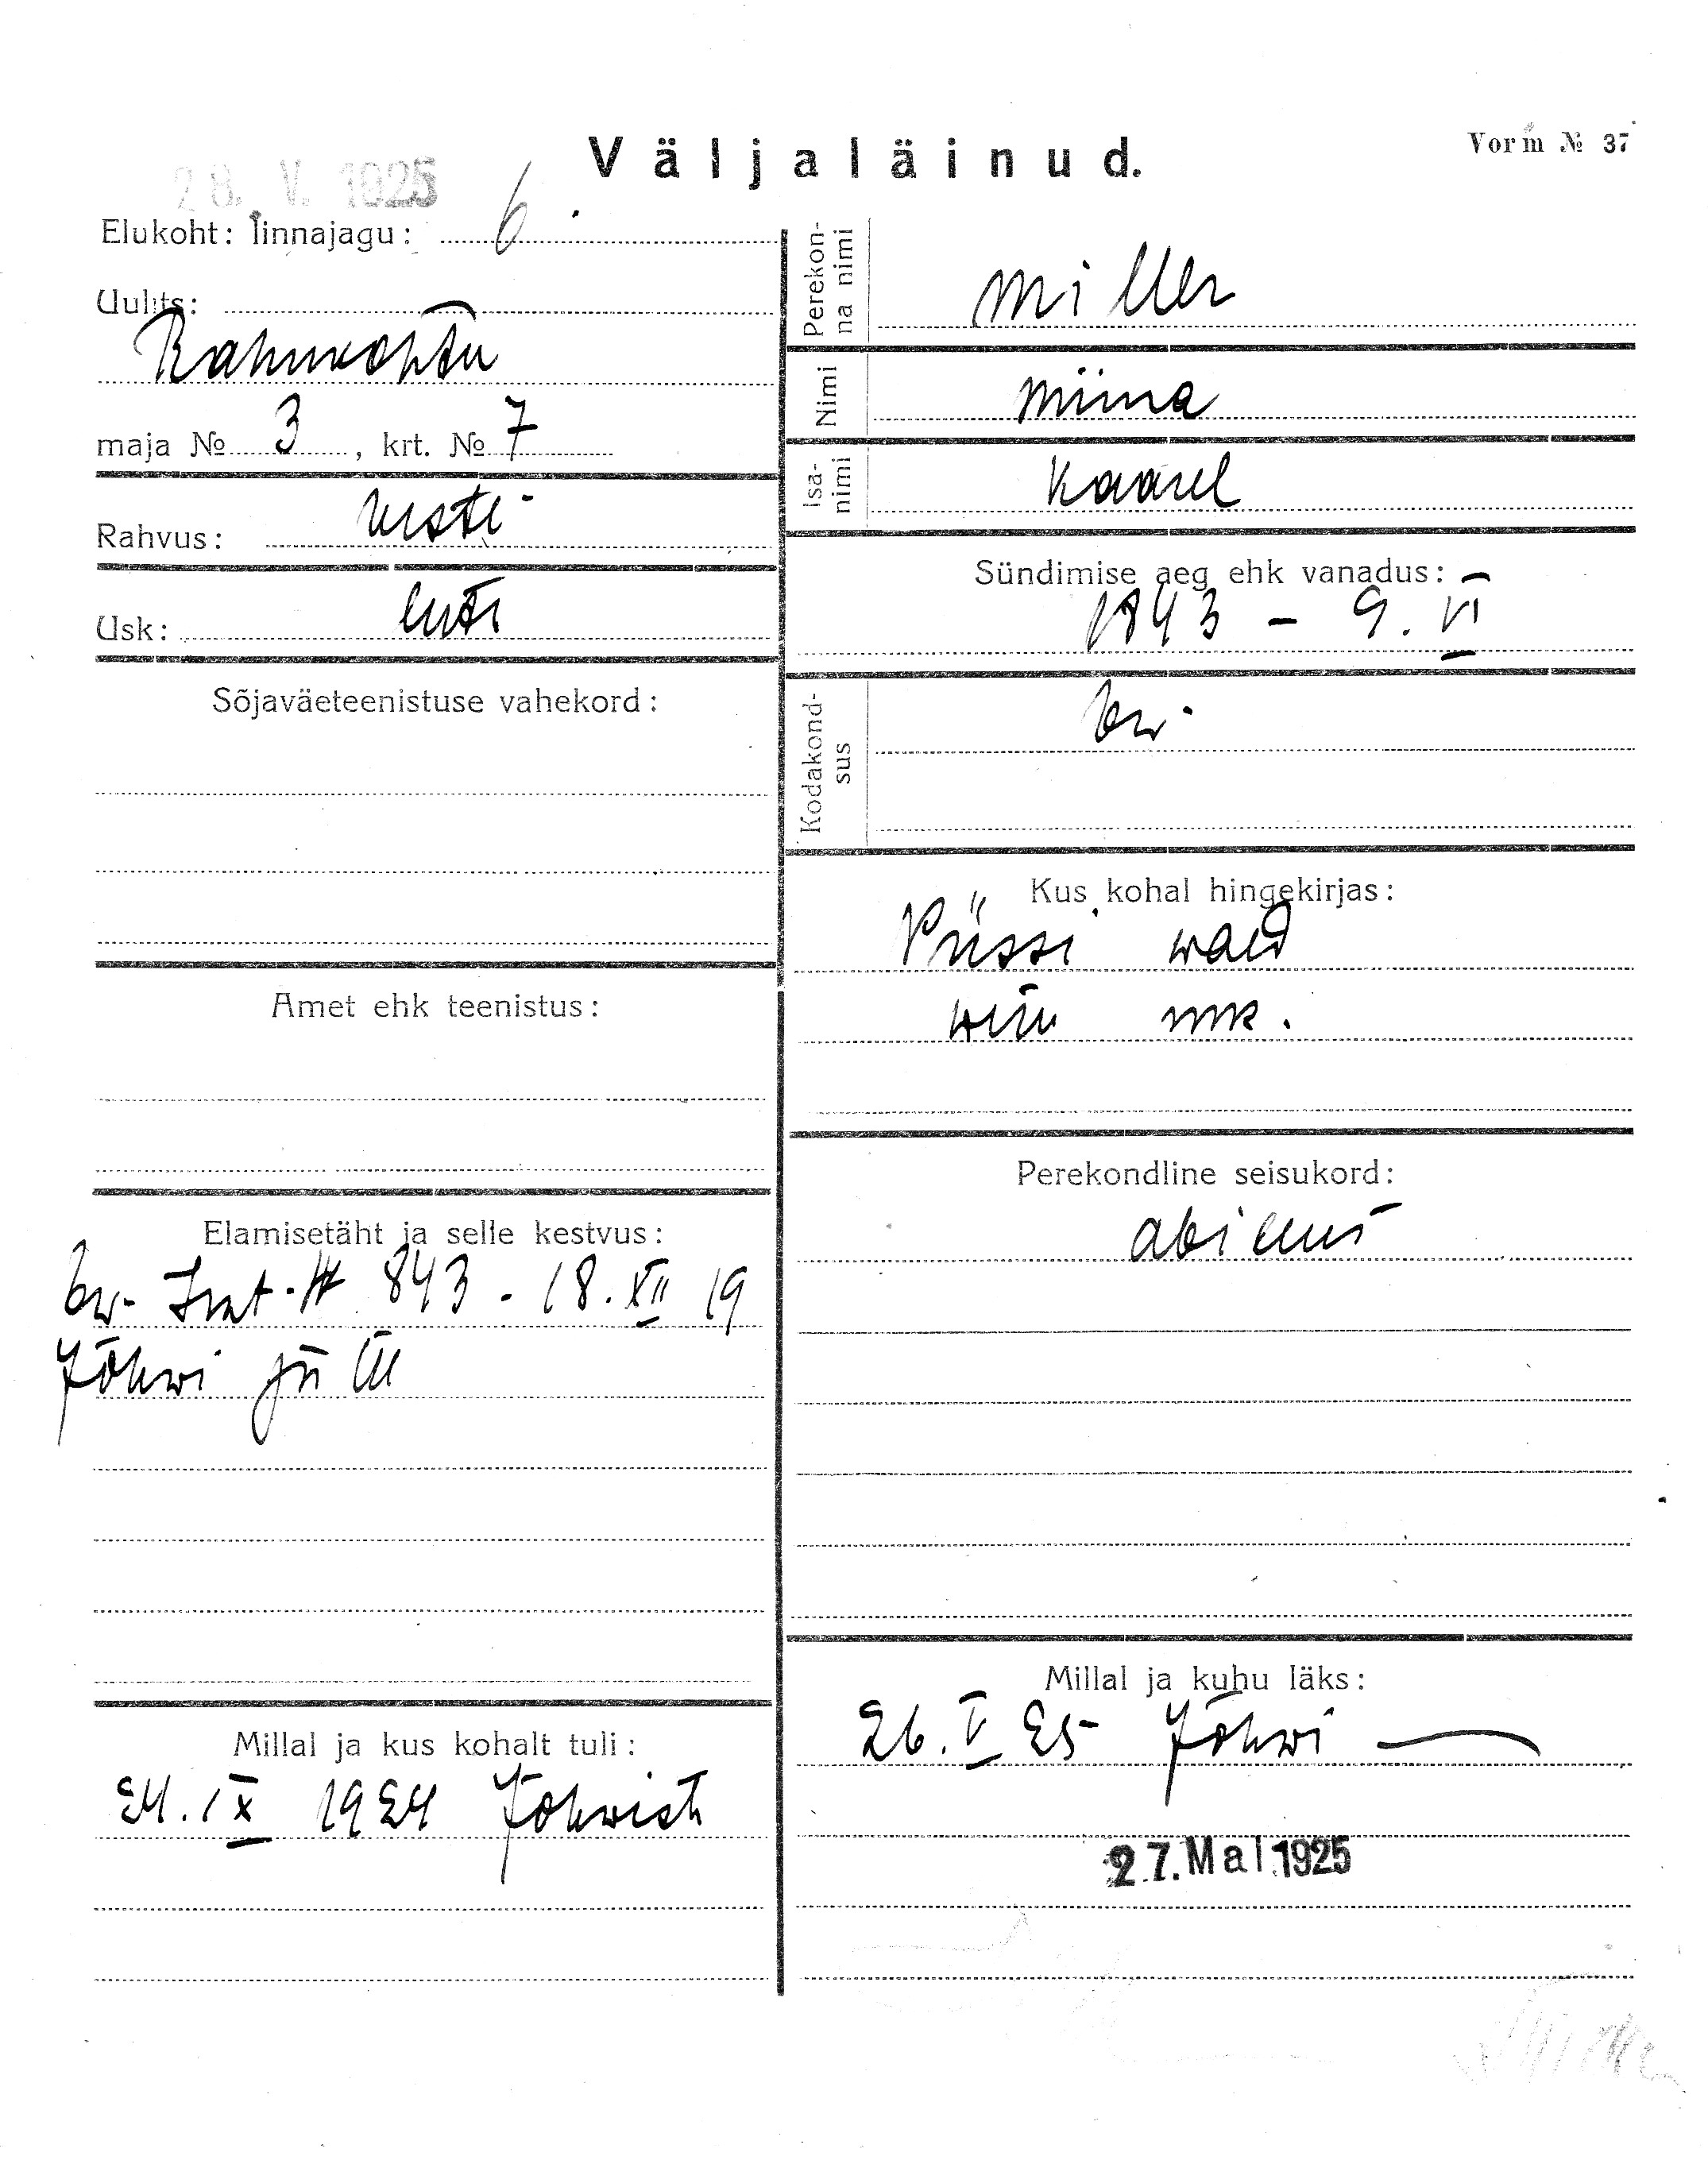 Väljaläinud.
Vorm № 37
28. V. 1925
Elukoht: linnajagu: 6
Uulits:
Rahukohtu
maja № 3, krt. № 7
Rahvus: eesti
Usk: luti
Sõjaväeteenistuse vahekord:
Amet ehk teenistus:
Elamisetäht ja selle kestvus:
843. 18. XII 19
Jõhwi
Millal ja kus kohalt tuli:
24. IX 1924 Jõhwist
Perekonna nimi
Miller
Nimi
Miina
Isanimi
Kaarel
Sündimise aeg ehk vanadus:
1843 - 9. VI
Kodakondsus
Kus kohal hingekirjas:
Püssi wald
Wiru mk.
Perekondline seisukord:
abielus
Millal ja kuhu läks:
26. V 25 Jõhwi
27. Mai 1925